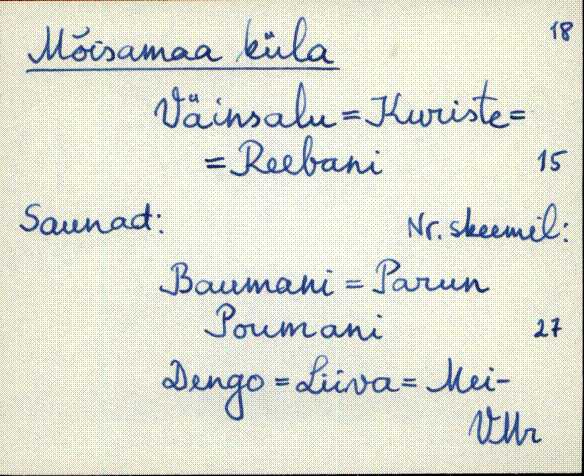 18
Mõisamaa küla
Väinsalu = Kuriste =
= Reebani 15
Saunad: Nr. skeemil:
Baumani = Parun
Poumani 27
Dengo = Liiva = Mei-